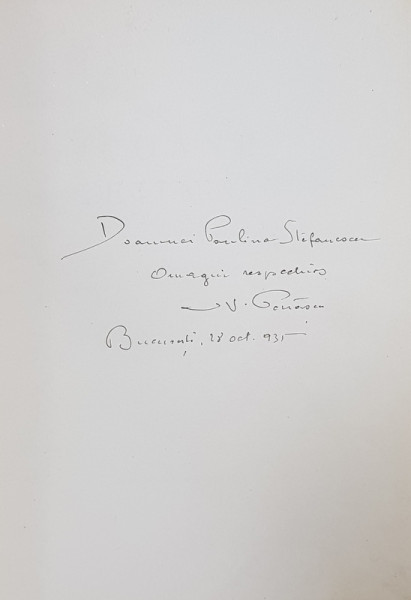 Doamnei Paulina Ștefănescu
Omagiu respectuos
N. Petrașcu
București, 28 oct. 935